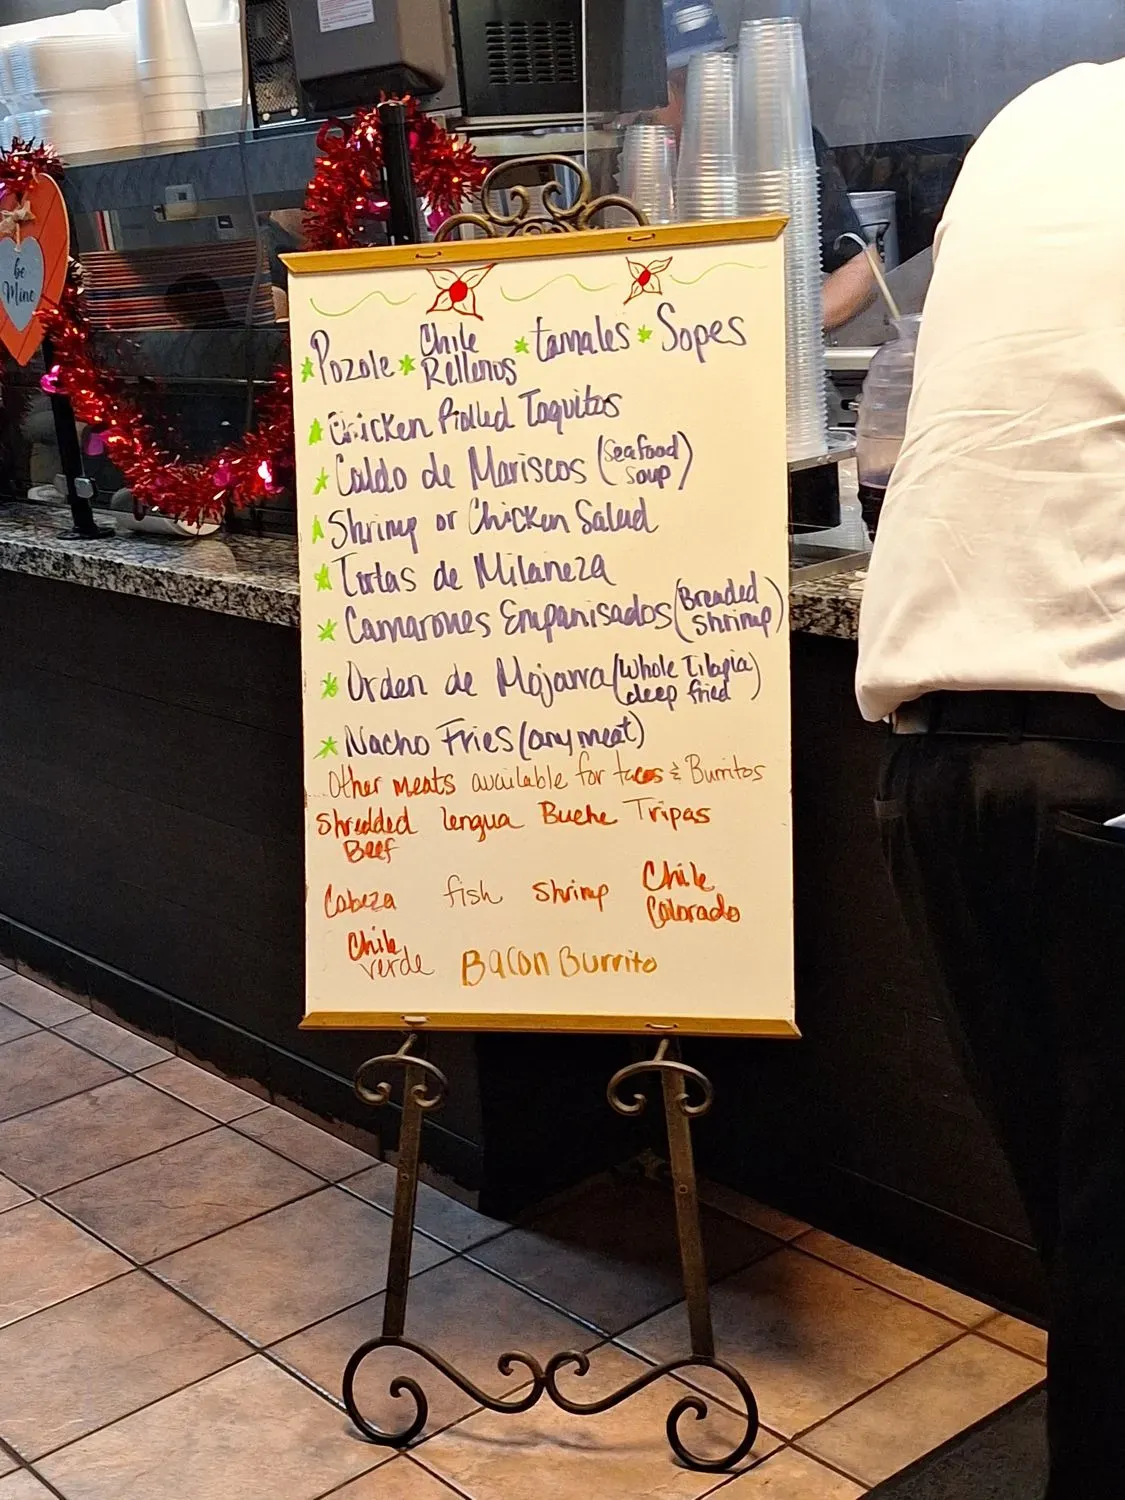 be
Mine
Pozole Chile Rellenos tamales Sopes
Chicken Rolled Taquitos
Caldo de Mariscos (Seafood soup)
Shrimp or Chicken Salad
Tortas de Milaneza
Camarones Empanisados (Breaded shrimp)
Orden de Mojarra (Whole Tilapia deep fried)
Nacho Fries (any meat)
Other meats available for tacos & Burritos
Shredded Beef lengua Buche Tripas
Cabeza fish shrimp Chile Colorado
Chile verde Bacon Burrito